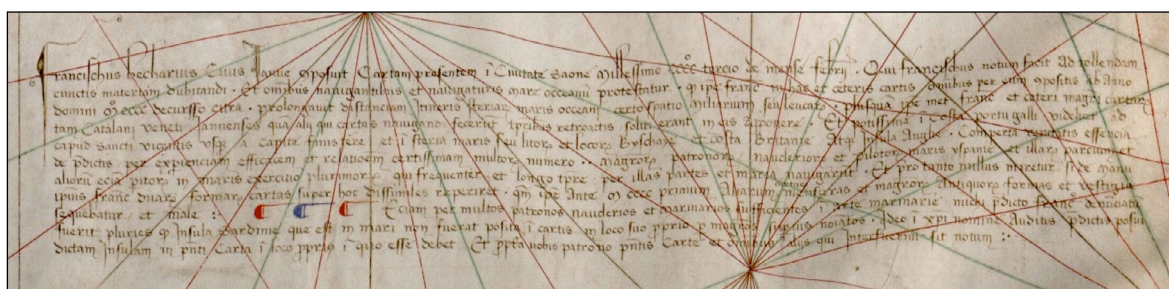 Francischus becharius Civis Janue Cōposuit Cartam presentem ī Civitate Saone Millessimo CCCC tercio de mense febrij · Qui francischus notum facit Ad tollendam
cunctis materiam dubitandi · Et omnibus navigantibus et navigaturis mare occeani protestatur · ꝙ ipe franc in has et ceteris cartis omnibus per eum cōpositis ab Anno
domini Mº CCCC decursso citra · prolongavit distanciam itineris steriar maris occeani certo spatio miliarium seu leucar · plusquā ipe met franc et ceteri magri cartar
tam Catalani veneti Jannenses quā alij qui cartas navigandi fecerūt tpribus retroactis soliti erant in eis Raponere · Et potissime ī costa portugalli videlicet ad
capud sancti vicentis usꝙ a capite finis tere et ī steria maris seu litor et locor Byschaye et costa Britanie Atꝙ Jnsula Anglie · Comperta veritatis essencia
de pdictis per expienciam efficacem et relatioem certissimam multor numero · magror patronor naucleriorum et pilotor maris yspanie et illar parcium et
aliorū eciā pitor in maris exercitio plurimor qui frequenter et longo tpre per illas partes et maria navigarūt · Et pro tanto nullus miretur si de manu
ipius franc duar formar cartas super hoc dissimiles reperiret · qm ipe Ante Mº CCCC primum Aliarum magror et magror Antiquor formas et vestigia
sequebatur et male :· Eciam per multos patronos nauclerios et marinarios sufficientes ī arte marinarie michi pdicto franc denūciatū
fuerit pluries ꝙ Jnsula Sardinie que est in mari non fuerat posita ī cartis in loco suo pprio ꝑ magros supius notatos · Jdeo ī xpi nomine Auditis pdictis posui
dictam Jnsulam in pnti Carta ī loco pprio ī quo esse debet · Et ppta vobis patrono pntis Carte et omnibus Alijs qui interfuerint sit notum :·